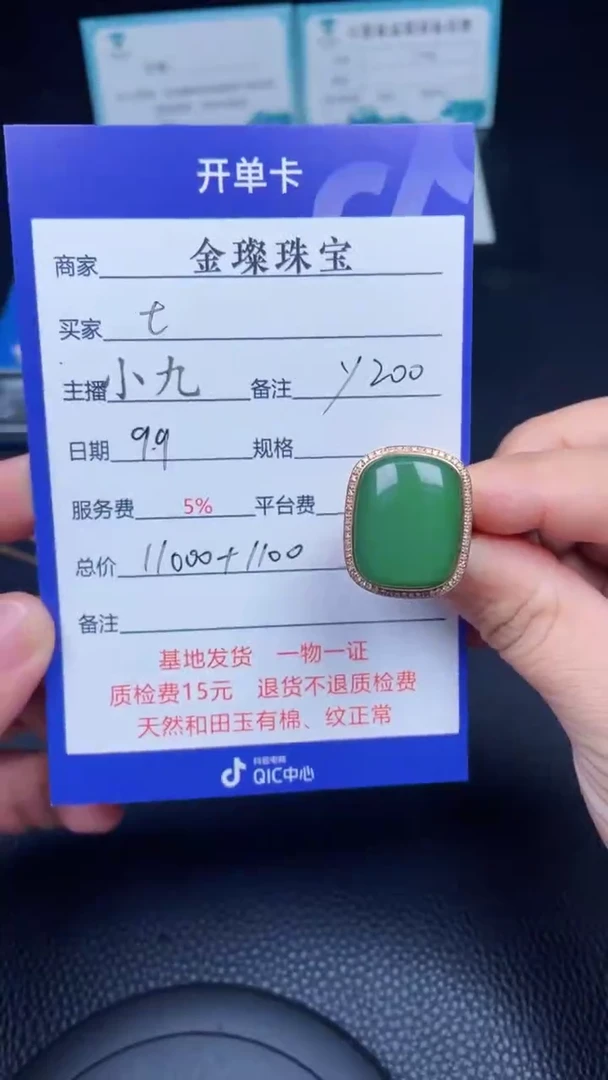 开单卡
商家 金璨珠宝
买家 七
主播 小九 备注 y200
日期 9.9 规格
服务费 5% 平台费
总价 11000+1100
备注
基地发货 一物一证
质检费15元 退货不退质检费
天然和田玉有棉、纹正常
抖音电商
QIC中心